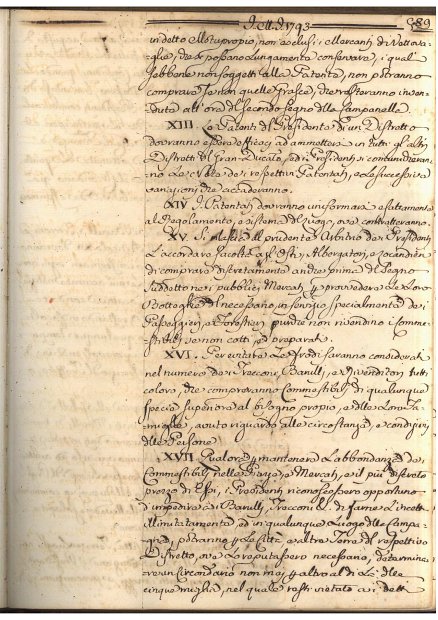 J. M. J. 1793 989
in detto Motuproprio, non esclusi i Mercanti di Vettova-
glie, che possano lungamente conservarsi, i quali
sebbene non soggetti alla Patente, non potranno
comprare se non quelle Grasce, che resteranno inven-
dute all'ora del secondo segno della Campanella.
XIII. Le Patenti del Presidente di un Distretto
dovranno essere efficaci, ed ammettersi in tutti gli altri
Distretti del Gran-Ducato, ed i Presidenti si comunicheran-
no le Note dei respettivi Patentati, e le successive
variazioni che accaderanno.
XIV. I Patentati dovranno uniformarsi esattamente
al Regolamento, e sistema del luogo, ove contratteranno.
XV. Si rilascia al prudente Arbitrio dei Presidenti
l'accordare facoltà agli Osti, Albergatori, e Locandieri
di comprare discretamente anche prima del Segno
suddetto nei pubblici Mercati per provvedere le Loro
Botteghe del necessario in servizio specialmente dei
Passeggieri, e Forestieri purchè non rivendino i Comme-
stibili se non cotti, ed preparati.
XVI. Per evitare le frodi saranno considerati
nel numero dei Trecconi, Barulli, e Rivenditori tutti
coloro, che compreranno Commestibili di qualunque
specie superiore al bisogno proprio, e delle Loro Fa-
miglie, avuto riguardo alle circostanze, e condizioni
delle Persone.
XVII. Qualora per mantenere l'abbondanza dei
Commestibili nelle Piazze, e Mercati, e il più discreto
prezzo di Essi, i Presidenti riconoscessero opportuno
d'impedire ai Barulli, Trecconi &. di farne l'incetta
illimitatamente ed in qualunque Luogo delle Campa-
gne, potranno per le Città, e altre Terre del respettivo
Distretto, ove Lo reputassero necessario, determina-
re un Circondario non mai per altro al di là delle
cinque miglia, nel quale resti vietato ai detti